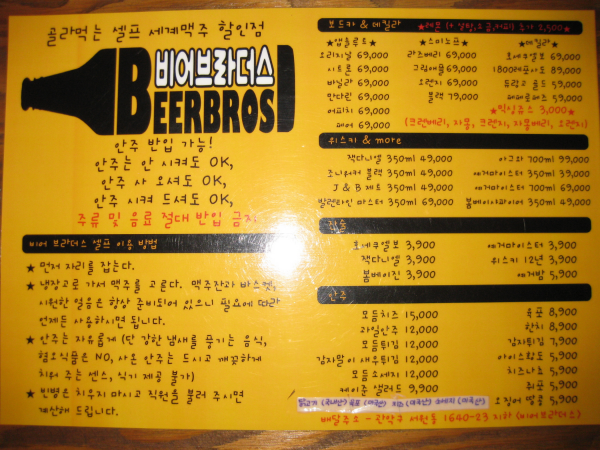 골라먹는 셀프 세계맥주 할인점
비어브라더스
BEERBROS
안주 반입 가능!
안주는 안 시켜도 OK,
안주 사 오셔도 OK,
안주 시켜 드셔도 OK,
주류 및 음료 절대 반입 금지
비어 브라더스 셀프 이용 방법
★ 먼저 자리를 잡는다.
★ 냉장고로 가서 맥주를 고른다. 맥주잔과 바스켓,
시원한 얼음은 항상 준비되어 있으니 필요에 따라
언제든 사용하시면 됩니다.
★ 안주는 자유롭게 (단 강한 냄새를 풍기는 음식,
혐오식품은 NO, 사온 안주는 드시고 깨끗하게
치워 주는 센스, 식기 제공 불가)
★ 빈병은 치우지 마시고 직원을 불러 주시면
계산해 드립니다.
보드카 & 데킬라
★앱솔루트★
오리지널 69,000
시트론 69,000
바닐라 69,000
만다린 69,000
어피치 69,000
페어 69,000
★스미노프★
라즈베리 69,000
그린애플 69,000
오렌지 69,000
블랙 79,000
★데킬라★
호세쿠엘보 69,000
1800레포사도 89,000
투핑거 골드 59,000
페페로페즈 59,000
★믹싱쥬스 3,000★
(크랜베리, 자몽, 크랜지, 자몽베리, 오렌지)
위스키 & more
잭다니엘 350ml 49,000
조니워커 블랙 350ml 49,000
J & B 제트 350ml 49,000
발렌타인 마스터 350ml 69,000
아그와 700ml 99,000
예거마이스터 350ml 39,000
예거마이스터 700ml 69,000
봄베이사파이어 350ml 49,000
잔술
호세쿠엘보 3,900
잭다니엘 3,900
봄베이진 3,900
예거마이스터 3,900
위스키 12년 3,900
예거밤 5,900
안주
모듬치즈 15,000
과일안주 12,000
모듬튀김 12,000
감자말이 새우튀김 12,000
모듬소세지 12,000
케이준 샐러드 9,900
육포 8,900
한치 8,900
감자튀김 7,900
아이스황도 5,900
치즈나쵸 5,900
쥐포 5,900
오징어 땅콩 5,900
배달주소 - 관악구 서원동 1640-23 지하 (비어브라더스)